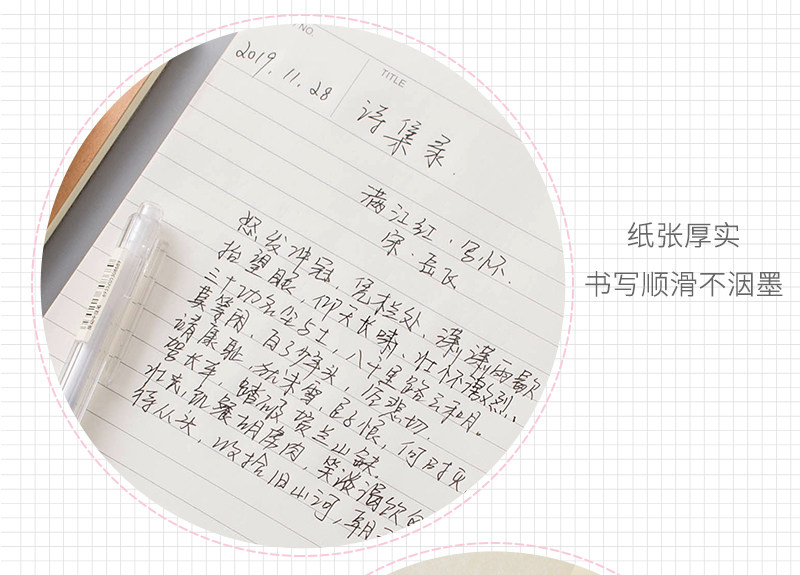 NO.
2019.11.28
TITLE
诗集录.
满江红·写怀.
宋·岳飞
怒发冲冠，凭栏处，潇潇雨歇
抬望眼，仰天长啸，壮怀激烈..
三十功名尘与土，八千里路云和月。
莫等闲，白了少年头，空悲切.
靖康耻，犹未雪，臣子恨，何时灭
驾长车，踏破贺兰山缺.
壮志饥餐胡虏肉，笑谈渴饮匈
待从头，收拾旧山河，朝
纸张厚实
书写顺滑不洇墨